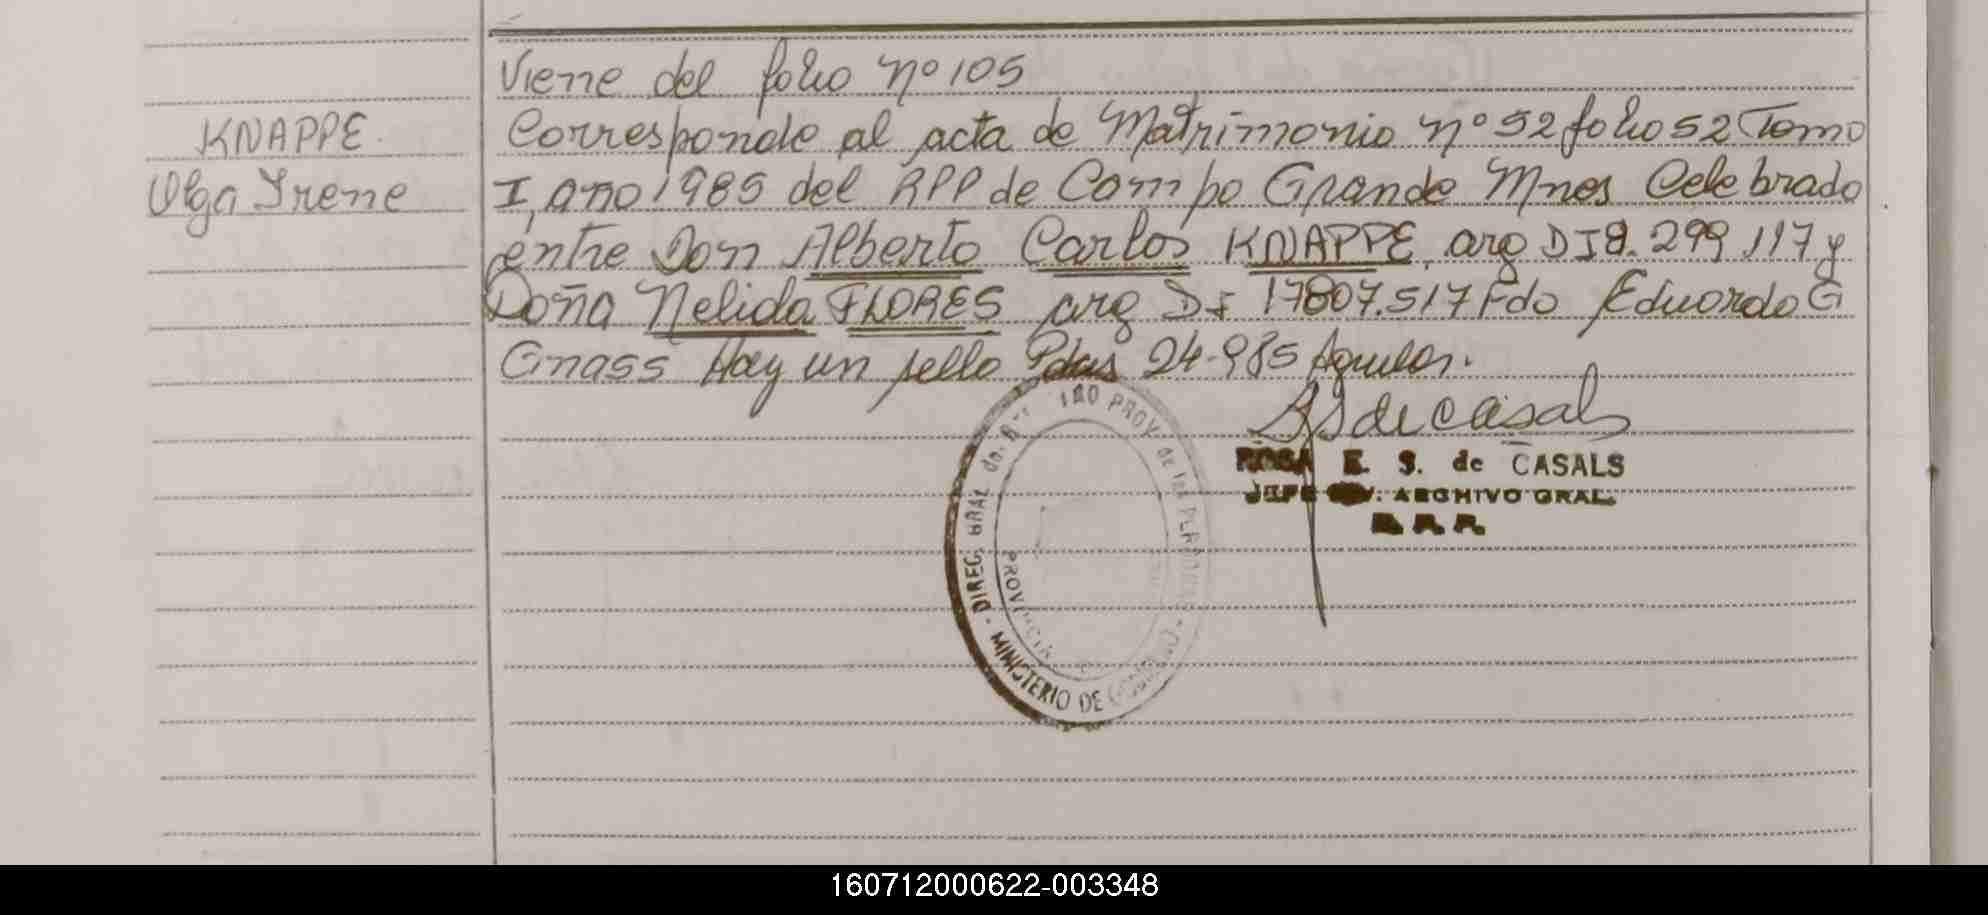 Viene del folio nº 105
KNAPPE.
Olga Irene
Corresponde al acta de Matrimonio nº 52 folio 52 Tomo
I, año 1985 del RPP de Campo Grande Mnes Celebrado
entre Don Alberto Carlos KNAPPE, arg DI 8.299.117 y
Doña Nelida FLORES arg DI 17807.517 Fdo Eduardo G
Gnass Hay un sello Pdas 24-985
ROSA E. S. de CASALS
JEFE ARCHIVO GRAL.
DIREC. GRAL del PROV de las PERSONAS - MINISTERIO DE GOBIERNO -
PROVINCIA
160712000622-003348